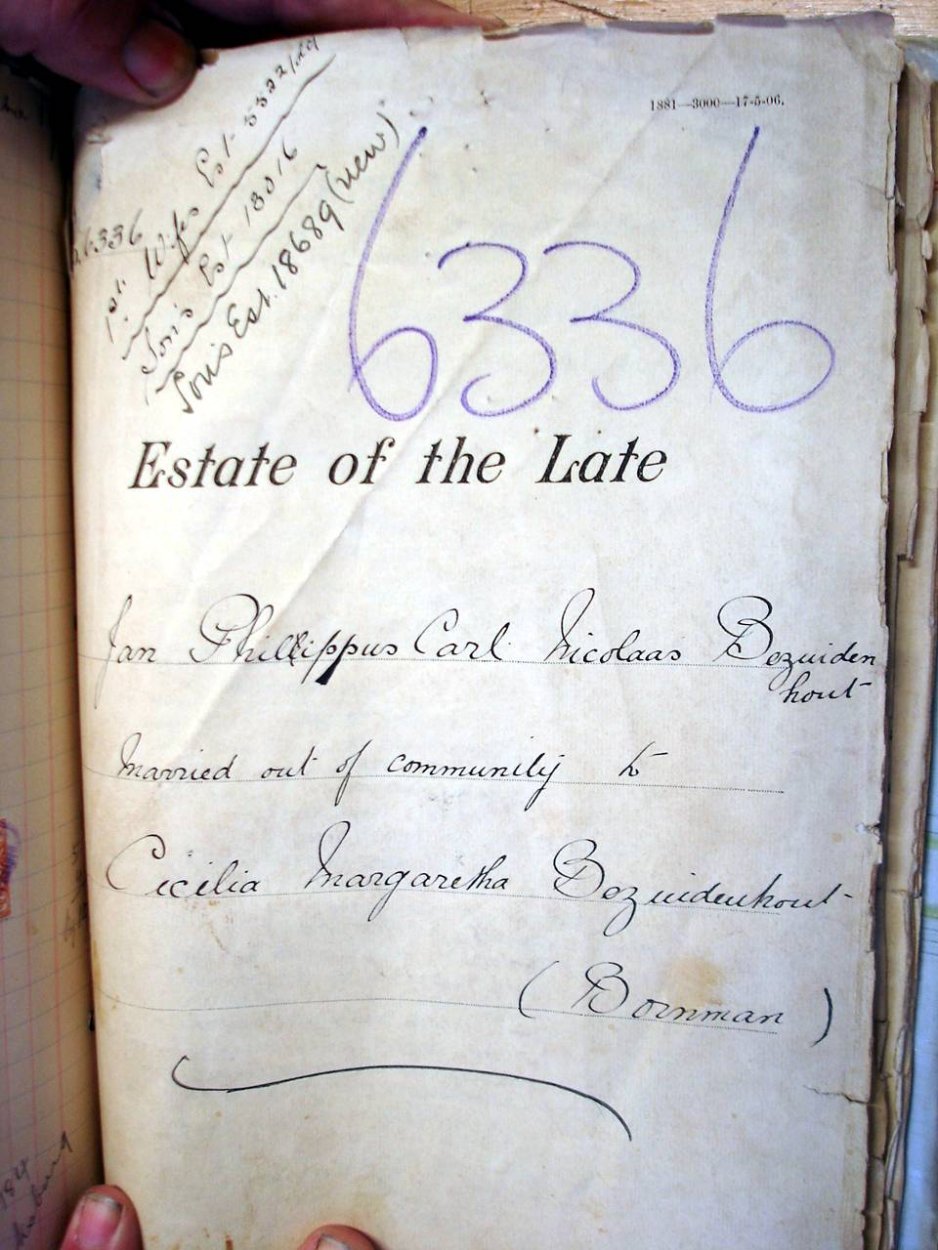 1881—3000—17-5-06.
6336
1st Wifes Est
Son's Est 18016
Son's Est. 18689 (new)
6336
Estate of the Late
Jan Phillippus Carl Nicolaas Bezuiden
hout
Married out of community to
Cicilia Margaretha Bezuidenhout
(Bornman)